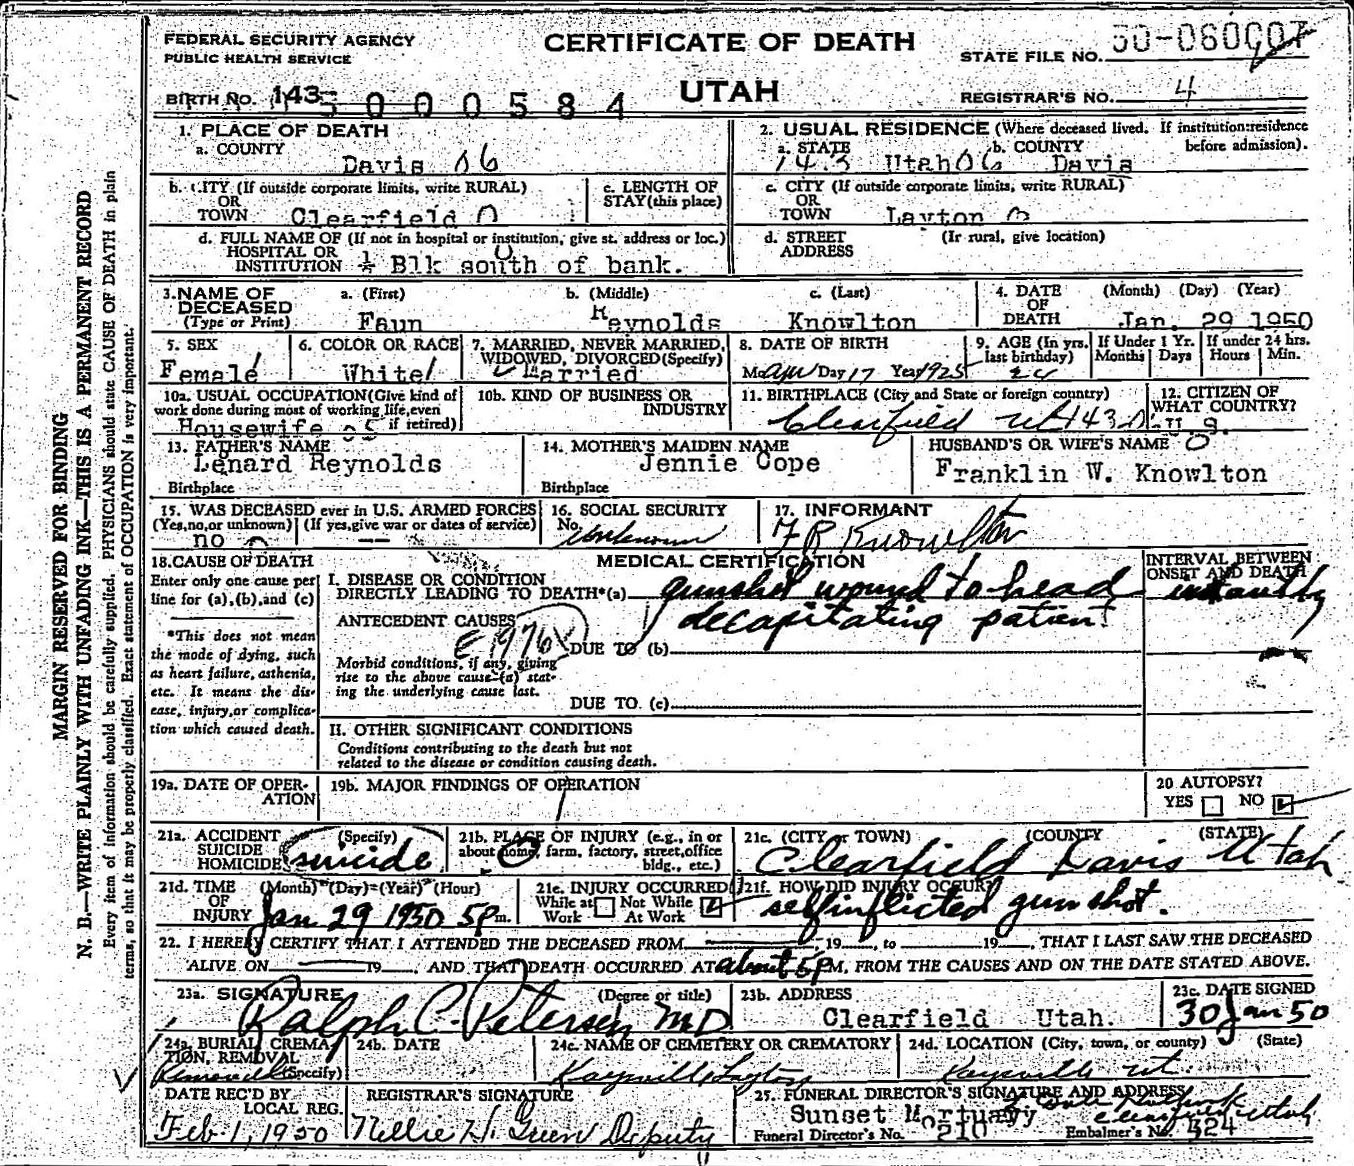 FEDERAL SECURITY AGENCY
PUBLIC HEALTH SERVICE
CERTIFICATE OF DEATH
UTAH
STATE FILE NO. 50-060007
REGISTRAR'S NO. 4
BIRTH NO. 143 5000584
1. PLACE OF DEATH
a. COUNTY
Davis 06
2. USUAL RESIDENCE (Where deceased lived. If institution:residence before admission).
a. STATE b. COUNTY
143 Utah 06 Davis
b. CITY (If outside corporate limits, write RURAL)
OR
TOWN Clearfield 0
c. LENGTH OF
STAY (this place)
c. CITY (If outside corporate limits, write RURAL)
OR
TOWN Layton
d. FULL NAME OF (If not in hospital or institution, give st. address or loc.)
HOSPITAL OR
INSTITUTION ½ Blk south of bank.
d. STREET (If rural, give location)
ADDRESS
3. NAME OF DECEASED
(Type or Print)
a. (First) b. (Middle) c. (Last)
Faun Reynolds Knowlton
4. DATE OF DEATH (Month) (Day) (Year)
Jan. 29 1950
5. SEX
Female
6. COLOR OR RACE
White
7. MARRIED, NEVER MARRIED,
WIDOWED, DIVORCED (Specify)
Married
8. DATE OF BIRTH
Mo. Apr Day 17 Year 1925
9. AGE (In yrs. last birthday)
24
If Under 1 Yr.
Months Days
If under 24 hrs.
Hours Min.
10a. USUAL OCCUPATION (Give kind of
work done during most of working life, even
if retired)
Housewife
10b. KIND OF BUSINESS OR
INDUSTRY
11. BIRTHPLACE (City and State or foreign country)
Clearfield Ut 143
12. CITIZEN OF
WHAT COUNTRY?
U.S.
13. FATHER'S NAME
Lenard Reynolds
Birthplace
14. MOTHER'S MAIDEN NAME
Jennie Cope
Birthplace
HUSBAND'S OR WIFE'S NAME
Franklin W. Knowlton
15. WAS DECEASED ever in U.S. ARMED FORCES
(Yes, no, or unknown) (If yes, give war or dates of service)
no —
16. SOCIAL SECURITY
No. unknown
17. INFORMANT
F R Knowlton
18. CAUSE OF DEATH
Enter only one cause per
line for (a), (b), and (c)
*This does not mean
the mode of dying, such
as heart failure, asthenia,
etc. It means the dis-
ease, injury, or complica-
tion which caused death.
MEDICAL CERTIFICATION
I. DISEASE OR CONDITION
DIRECTLY LEADING TO DEATH*(a) gunshot wound to head
decapitating patient
ANTECEDENT CAUSES
E 976X
DUE TO (b)
Morbid conditions, if any, giving
rise to the above cause (a) stat-
ing the underlying cause last.
DUE TO (c)
INTERVAL BETWEEN
ONSET AND DEATH
instantly
II. OTHER SIGNIFICANT CONDITIONS
Conditions contributing to the death but not
related to the disease or condition causing death.
19a. DATE OF OPER-
ATION
19b. MAJOR FINDINGS OF OPERATION
20 AUTOPSY?
YES NO
21a. ACCIDENT (Specify)
SUICIDE
HOMICIDE suicide
21b. PLACE OF INJURY (e.g., in or
about home, farm, factory, street, office
bldg., etc.)
21c. (CITY or TOWN) (COUNTY) (STATE)
Clearfield Davis Utah
21d. TIME (Month) (Day) (Year) (Hour)
OF
INJURY Jan 29 1950 5 P m.
21e. INJURY OCCURRED
While at Work Not While At Work
21f. HOW DID INJURY OCCUR?
self inflicted gunshot.
22. I HEREBY CERTIFY THAT I ATTENDED THE DECEASED FROM , 19 , to 19 , THAT I LAST SAW THE DECEASED
ALIVE ON 19 , AND THAT DEATH OCCURRED AT about 5 P M, FROM THE CAUSES AND ON THE DATE STATED ABOVE.
23a. SIGNATURE (Degree or title)
Ralph C. Petersen MD
23b. ADDRESS
Clearfield Utah.
23c. DATE SIGNED
30 Jan 50
24a. BURIAL, CREMA-
TION, REMOVAL
(Specify)
Removal
24b. DATE
24c. NAME OF CEMETERY OR CREMATORY
Kaysville Layton
24d. LOCATION (City, town, or county) (State)
Kaysville Ut.
DATE REC'D BY
LOCAL REG.
Feb 1, 1950
REGISTRAR'S SIGNATURE
Nellie H. Green Deputy
25. FUNERAL DIRECTOR'S SIGNATURE AND ADDRESS
Sunset Mortuary Clearfield Utah
Funeral Director's No. 210 Embalmer's No. 524
MARGIN RESERVED FOR BINDING
N. B.—WRITE PLAINLY WITH UNFADING INK—THIS IS A PERMANENT RECORD
Every item of information should be carefully supplied. PHYSICIANS should state CAUSE OF DEATH in plain
terms, so that it may be properly classified. Exact statement of OCCUPATION is very important.